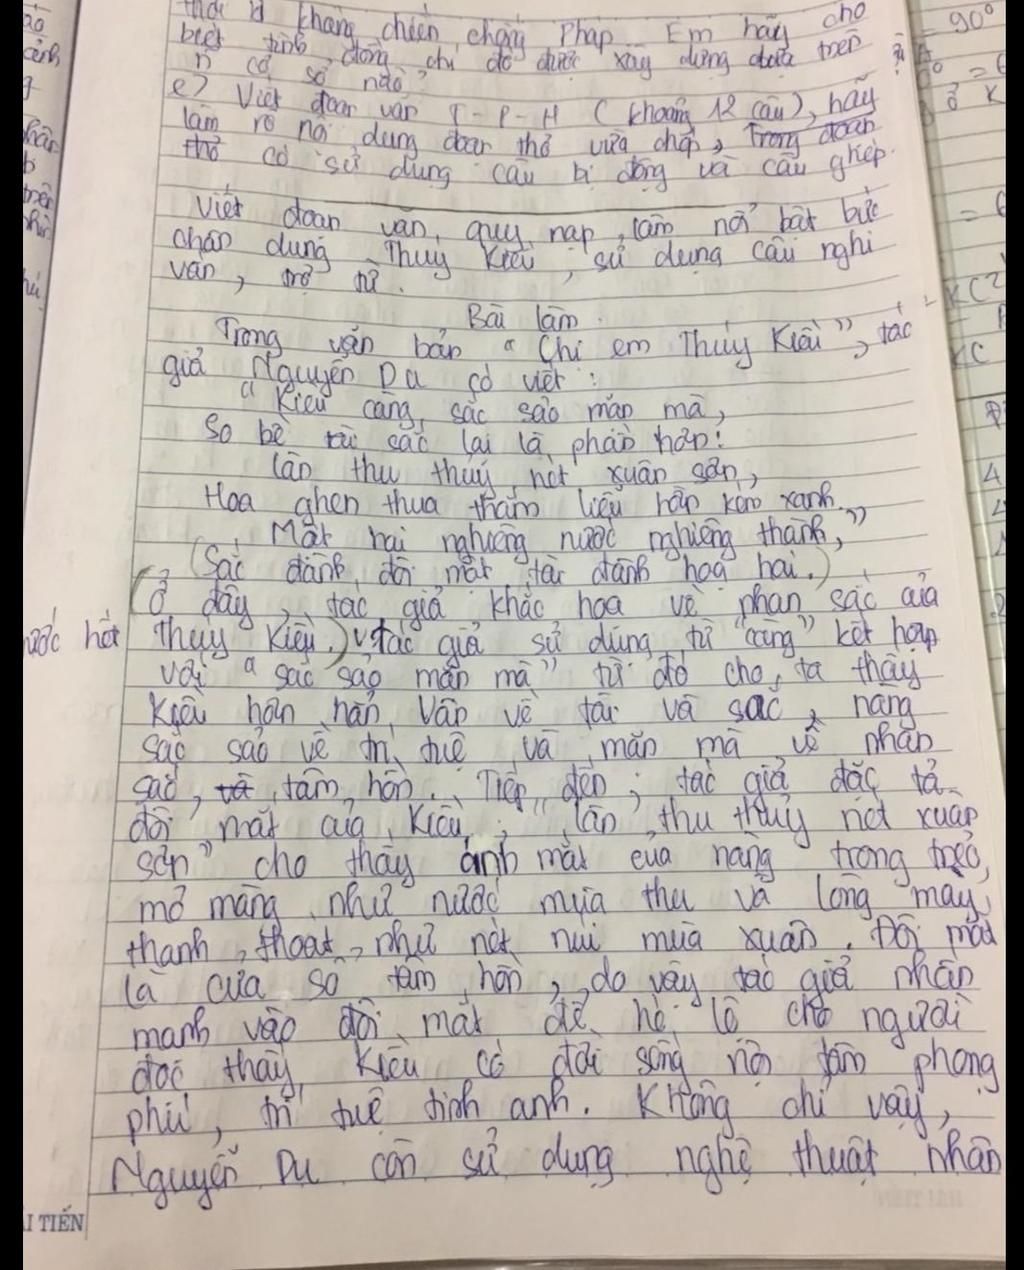 thời kì kháng chiến chống Pháp. Em hãy cho
biết tình đồng chí đó được xây dựng dựa trên
n cơ sở nào?
e) Viết đoạn văn T-P-H (khoảng 12 câu), hãy
làm rõ nội dung đoạn thơ vừa chép, trong đoạn
thơ có sử dụng câu bị động và câu ghép.
Viết đoạn văn quy nạp, làm nổi bật bức
chân dung Thúy Kiều, sử dụng câu nghi
vấn, trợ từ.
Bài làm.
Trong văn bản "Chị em Thúy Kiều", tác
giả Nguyễn Du có viết:
"Kiều càng sắc sảo mặn mà,
So bề tài sắc lại là phần hơn:
Làn thu thuỷ nét xuân sơn,
Hoa ghen thua thắm liễu hờn kém xanh.
Một hai nghiêng nước nghiêng thành,"
(Sắc đành đòi một tài đành hoạ hai.)
(Ở đây, tác giả khắc hoạ về phần sắc của
Thúy Kiều.) tác giả sử dụng từ "càng" kết hợp
với "sắc sảo mặn mà" từ đó cho ta thấy
Kiều hơn hẳn Vân về tài và sắc, nàng
sắc sảo về trí tuệ và mặn mà về nhan
sắc, tâm hồn. Tiếp đến, tác giả đặc tả
đôi mắt của Kiều, "làn thu thủy nét xuân
sơn" cho thấy ánh mắt của nàng trong trẻo,
mơ màng như nước mùa thu và lông mày
thanh thoát như nét núi mùa xuân. Đôi mắt
là cửa sổ tâm hồn, do vậy tác giả nhấn
mạnh vào đôi mắt để hé lộ cho người
đọc thấy Kiều có đời sống nội tâm phong
phú, trí tuệ tinh anh. Không chỉ vậy,
Nguyễn Du còn sử dụng nghệ thuật nhân
ước hết
I TIẾN
= 90°
KC